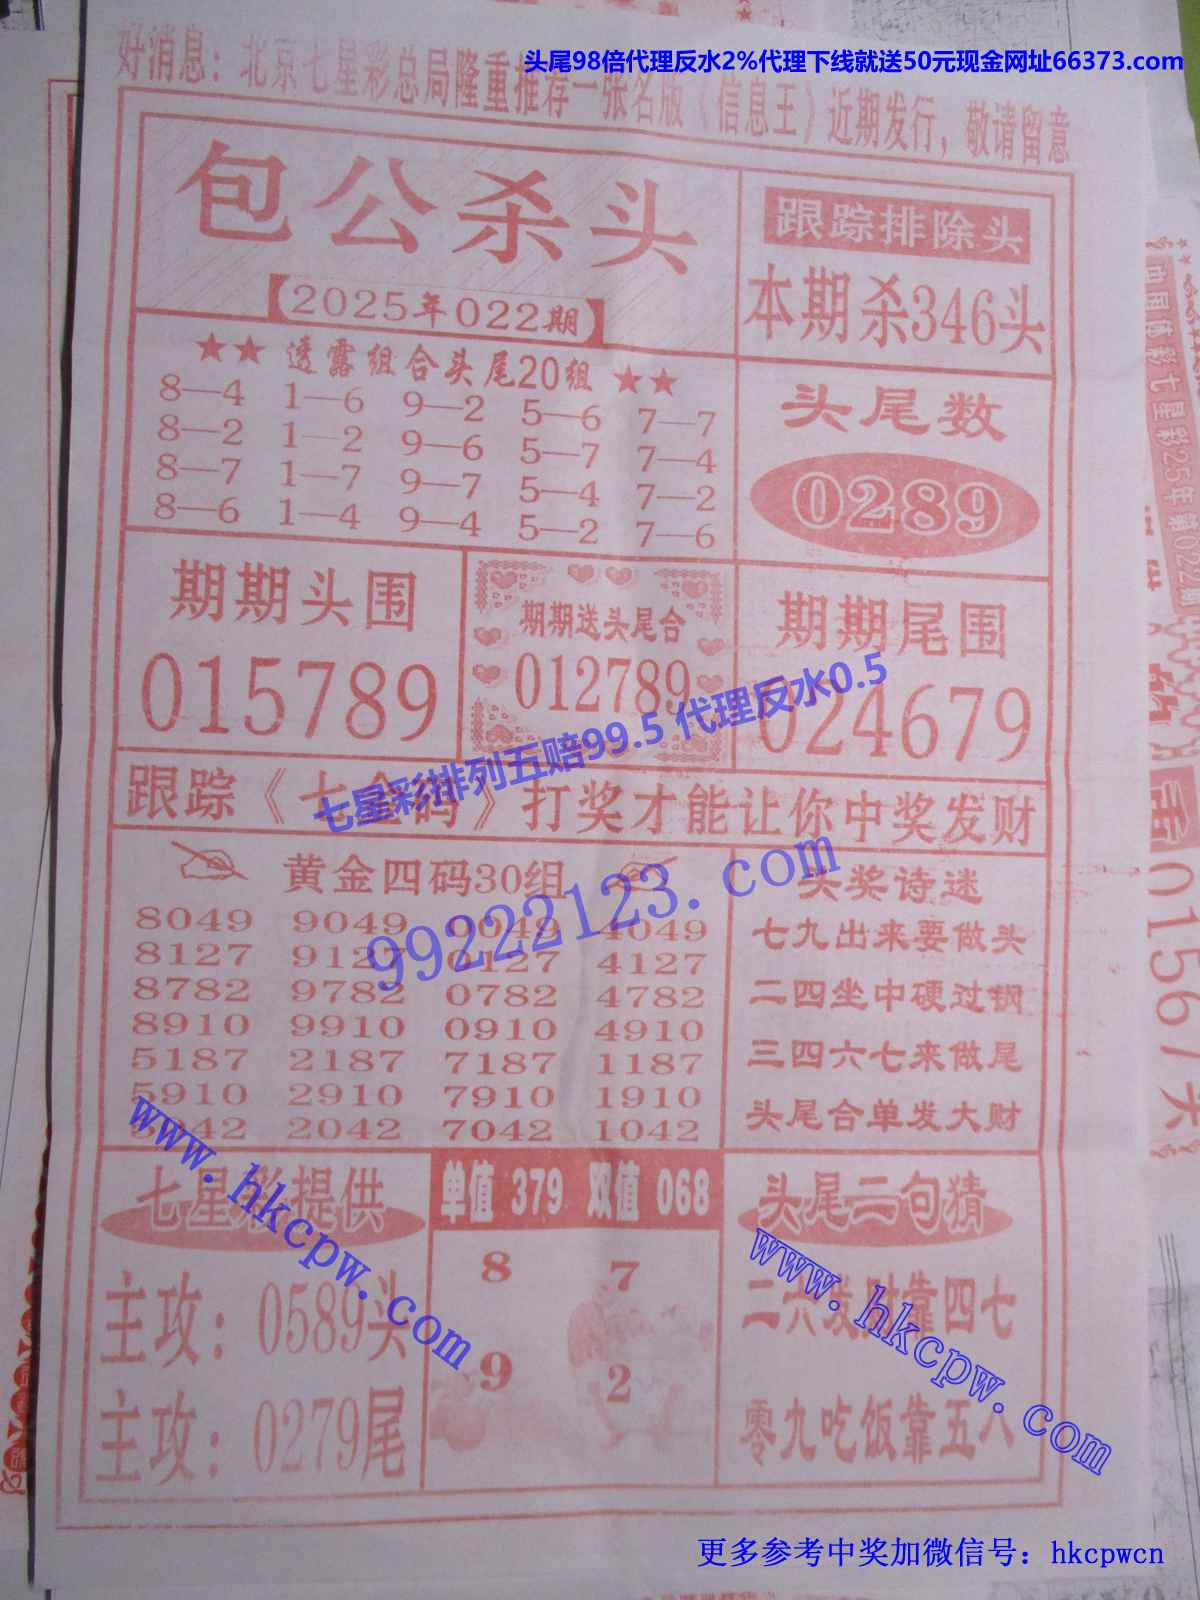 头尾98倍代理反水2%代理下线就送50元现金网址66373.com
好消息：北京七星彩总局隆重推荐一张名版《信息王》近期发行，敬请留意
包公杀头
【2025年022期】
跟踪排除头
本期杀346头
★★ 透露组合头尾20组 ★★
8—4 1—6 9—2 5—6 7—7
8—2 1—2 9—6 5—7 7—4
8—7 1—7 9—7 5—4 7—2
8—6 1—4 9—4 5—2 7—6
头尾数
0289
期期头围
015789
期期送头尾合
012789
期期尾围
024679
七星彩排列五赔99.5 代理反水0.5
跟踪《七金码》打奖才能让你中奖发财
99222123.com
黄金四码30组
8049 9049 0049 4049
8127 9127 0127 4127
8782 9782 0782 4782
8910 9910 0910 4910
5187 2187 7187 1187
5910 2910 7910 1910
2042 7042 1042
头奖诗迷
七九出来要做头
二四坐中硬过钢
三四六七来做尾
头尾合单发大财
www.hkcpw.com
七星彩提供
主攻：0589头
主攻：0279尾
单值 379 双值 068
8 7
9 2
头尾二句猜
二六发财靠四七
零九吃饭靠五八
www.hkcpw.com
更多参考中奖加微信号：hkcpwcn
中国体彩七星彩25年第022期
01567头